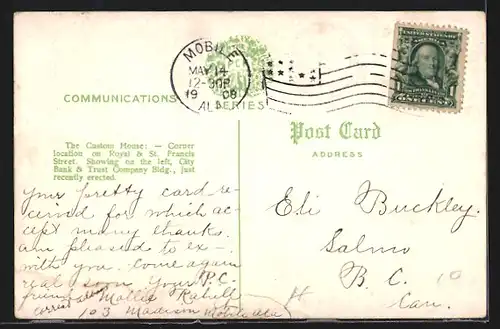 MOBILE
MAY 14
12-30P
1908
ALA
UNITED STATES OF AMERICA
1 1
ONE CENT
COMMUNICATIONS
SERIES
Post Card
ADDRESS
The Custom House: — Corner
location on Royal & St. Francis
Street. Showing on the left, City
Bank & Trust Company Bldg., just
recently erected.
Your pretty card re-
ceived for which ac-
cept many thanks.
am pleased to ex-
with you. Come again
real soon. Your P.C.
friend
Mollie
103 Madison Mobile Ala
Eli Buckley.
Salmo
B. C.
Can.
10